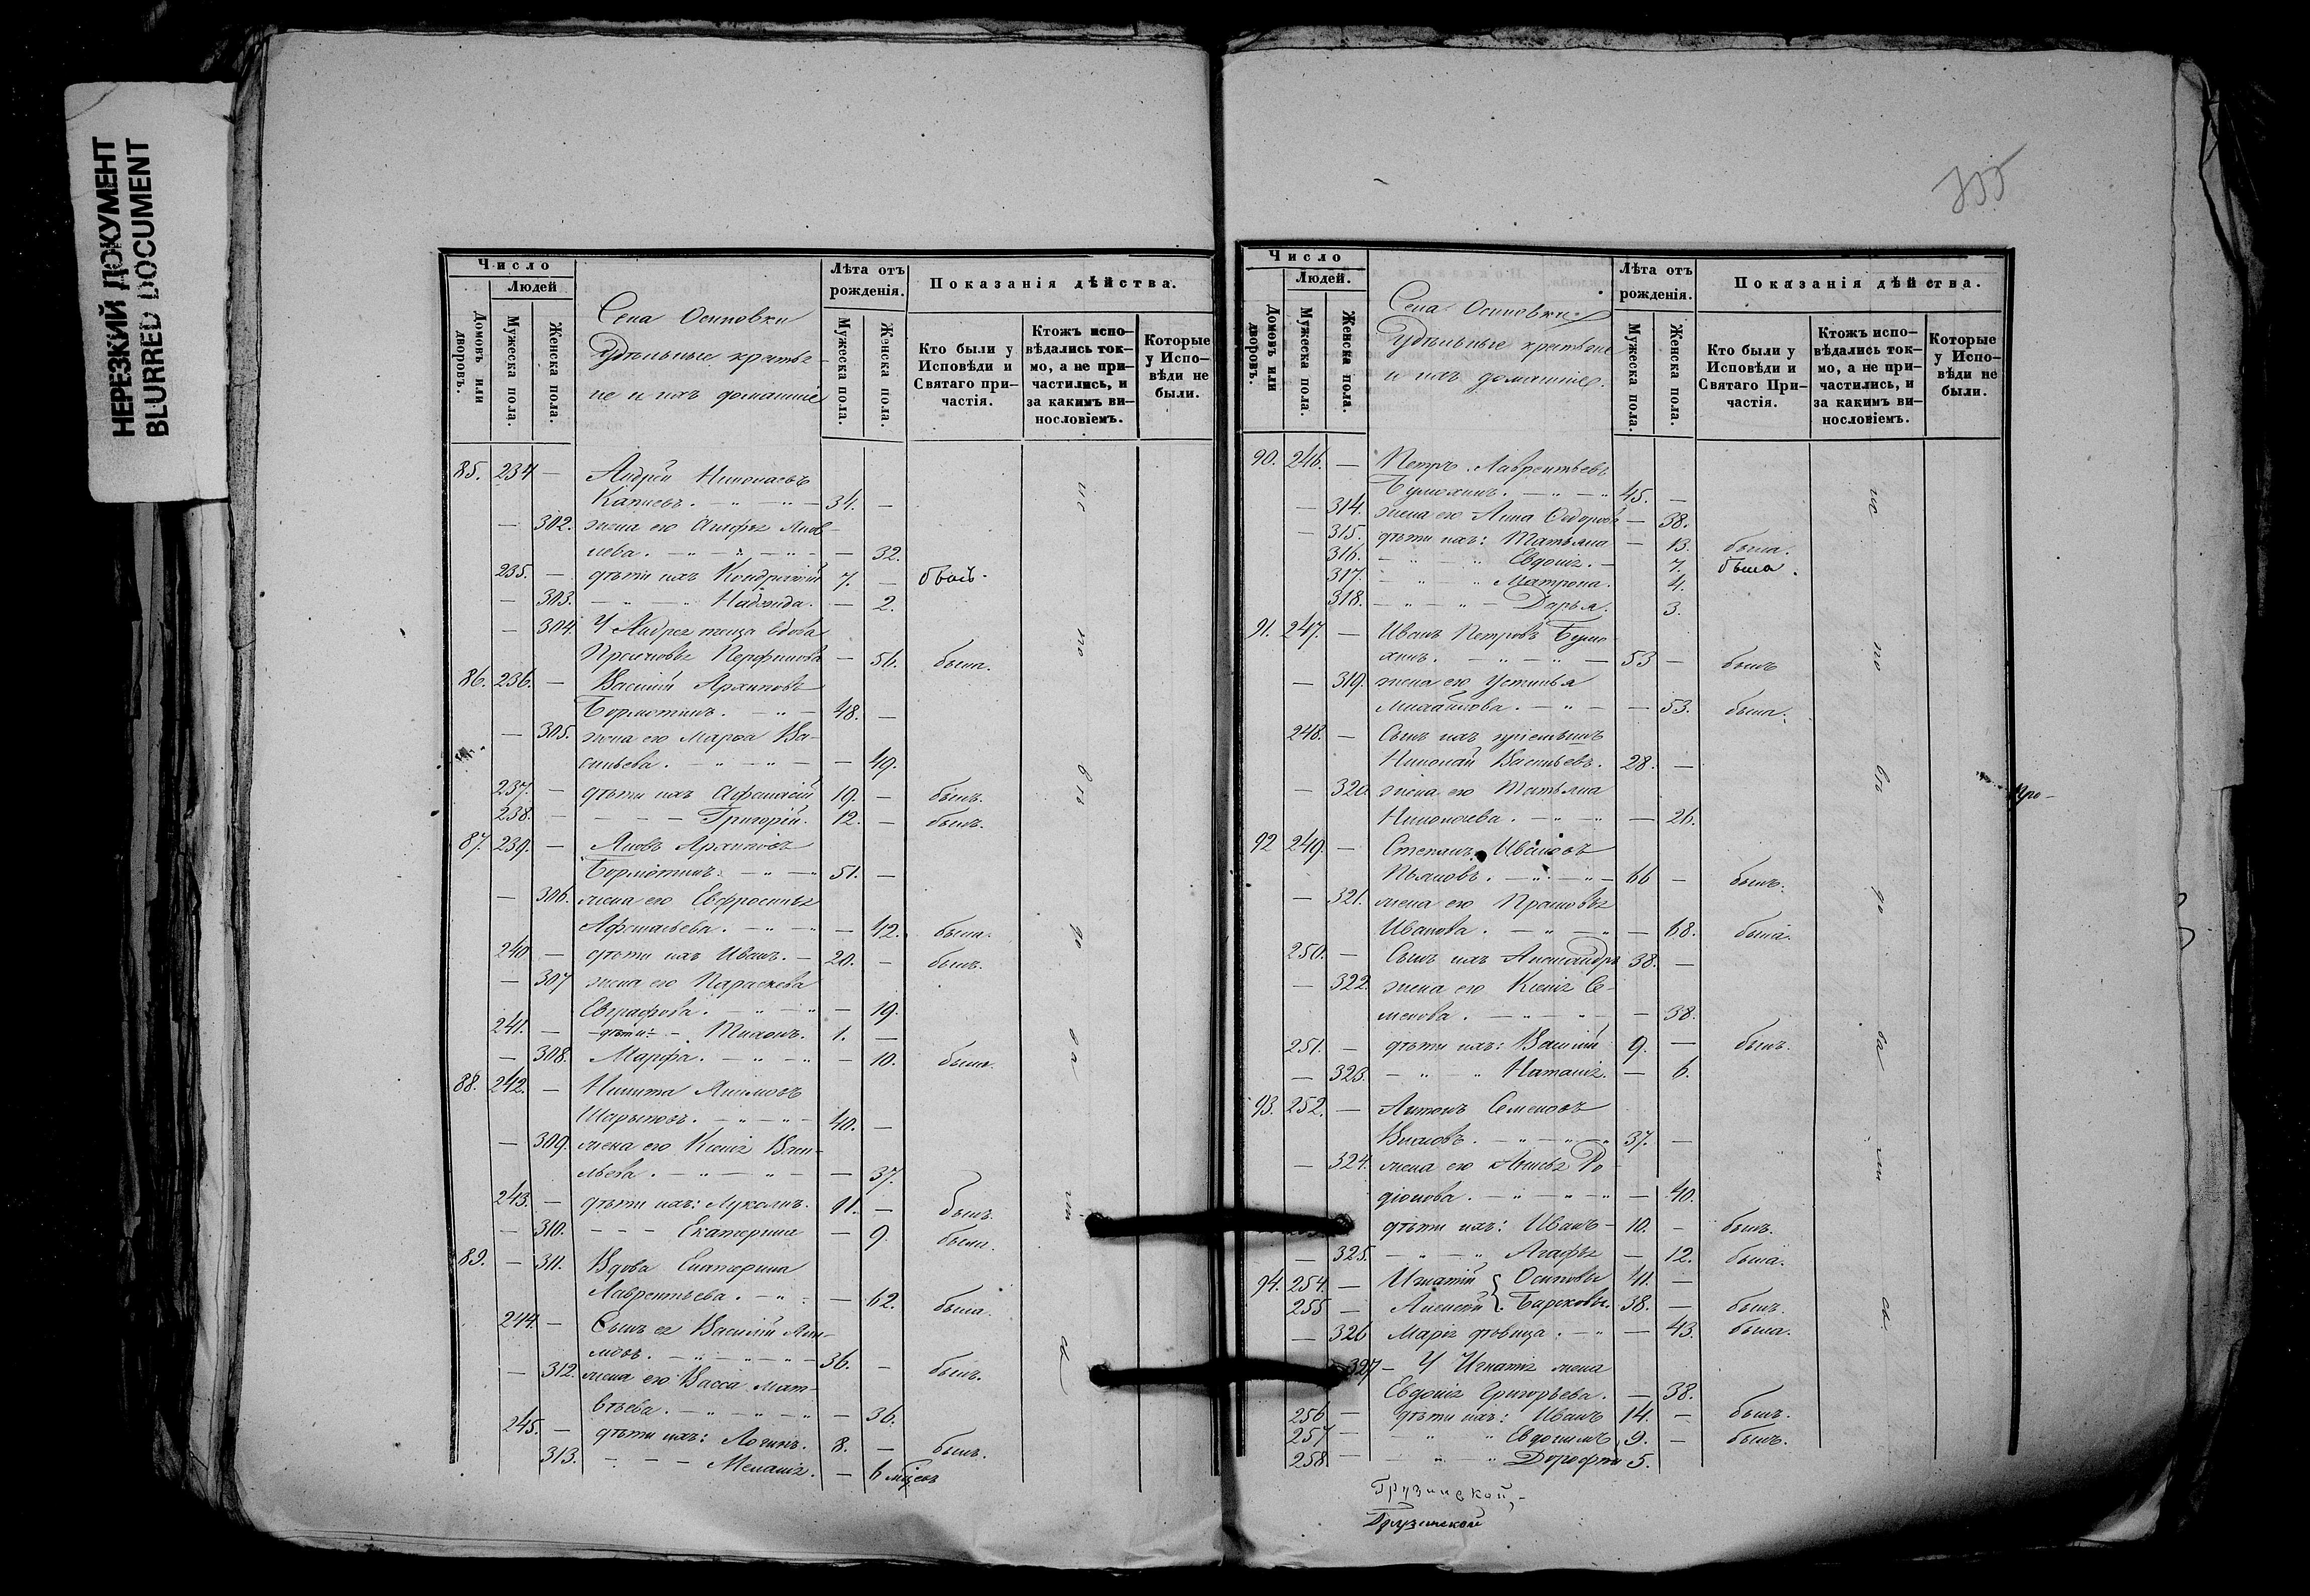 НЕРЕЗКИЙ ДОКУМЕНТ
BLURRED DOCUMENT
Число
Людей
Домовъ или дворовъ.
Мужеска пола.
Женска пола.
Села Осиповки
Удѣльные крестья-
не и ихъ домашніе
Лѣта отъ рожденія.
Мужеска пола.
Женска пола.
Показанія дѣйства.
Кто были у Исповѣди и Святаго при-частія.
Ктожъ испо-вѣдались ток-мо, а не при-частились, и за какимъ ви-нословіемъ.
Которые у Испо-вѣди не были.
85. 234 — Андрей Николаевъ
— 34. —
— 302. жена его Агафья Яков-
лева. — 32.
235. — дѣти ихъ Кондратій 7. — былъ.
— 303. Надежда. — 2.
— 304. У Андрея теща вдова
Перфилова — 56. была.
86. 236. — Василій Архиповъ
Бормотинъ. — 48. —
— 305. жена его Марѳа Ва-
сильева. — 49.
237. — дѣти ихъ Афанасій 19. — былъ.
238. — Григорій. 12. — былъ.
87. 239. — Яковъ Архиповъ
Бормотинъ. — 51. —
— 306. жена его Евфросинья
Афанасьева. — 42. была.
240 — дѣти ихъ Иванъ. — 20. — былъ.
— 307 жена его Параскева
Евграфова. — 19.
241. — дѣти: Тихонъ. 1. —
— 308. Марфа. — 10. была.
88. 242. — Никита Якимовъ
— 40. —
— 309. жена его Ксенія Васи-
льева. — 37.
243. — дѣти ихъ: 11. — былъ
— 310. Екатерина — 9 была.
89. — 311. Вдова Екатерина
Лаврентьева. — 62. была.
244. — Сынъ ея Василій Яки-
мовъ. — 36. — былъ.
— 312. жена его Васса Мат-
вѣева. — 36.
245. — дѣти ихъ: Логинъ. 8. — былъ.
313. Меланія. — 6 мѣсяц
исповѣдались
Число
Людей.
Домовъ или дворовъ.
Мужеска пола.
Женска пола.
Села Осиповки
Удѣльные крестьяне
и ихъ домашніе.
Лѣта отъ рожденія.
Мужеска пола.
Женска пола.
Показанія дѣйства.
Кто были у Исповѣди и Святаго При-частія.
Ктожъ испо-вѣдались ток-мо, а не при-частились, и за какимъ ви-нословіемъ.
Которые у Испо-вѣди не были.
90. 246. — Петръ Лаврентьевъ
— 45. —
— 314. жена его Анна Ѳедорова — 38.
— 315. дѣти ихъ: Татьяна — 13. была.
316. Евдокія. — 7. была.
317. Матрона. 4.
318. Дарья. 3.
91. 247. — Иванъ Петровъ
— 53 — былъ
— 319. жена его Устинья
Михайлова. — 53. была.
248. — Сынъ ихъ пріемышъ
Николай Васильевъ. 28. —
— 320. жена его Татьяна
Николаева. — 26.
92 249. — Степанъ Ивановъ
Пьяновъ. — 66 — былъ.
— 321. жена его Прасковья
Иванова. — 68. была.
250. — Сынъ ихъ Александръ 38. —
— 322. жена его Ксенія Се-
менова. — 38.
251. — дѣти ихъ: Василій 9. — былъ.
— 323. Наталія. — 6.
93. 252. — Антонъ Семеновъ
— 37. —
— 324. жена его Анисья Ро-
діонова. — 40.
дѣти ихъ: Иванъ — 10. — былъ.
— 325. Агафья — 12. была.
94. 254. — Игнатій { Осиповы 41. —
255 — Алексѣй { 38. — былъ.
— 326 Марія дѣвица. — 43. была.
327 — У Игнатія жена
Евдокія Григорьева. — 38.
256 — дѣти ихъ: Иванъ 14. — былъ.
257 — Евдокимъ 9. — былъ.
258 — Дорофей 5.
исповѣдовались
Грузинской,
Грузинской